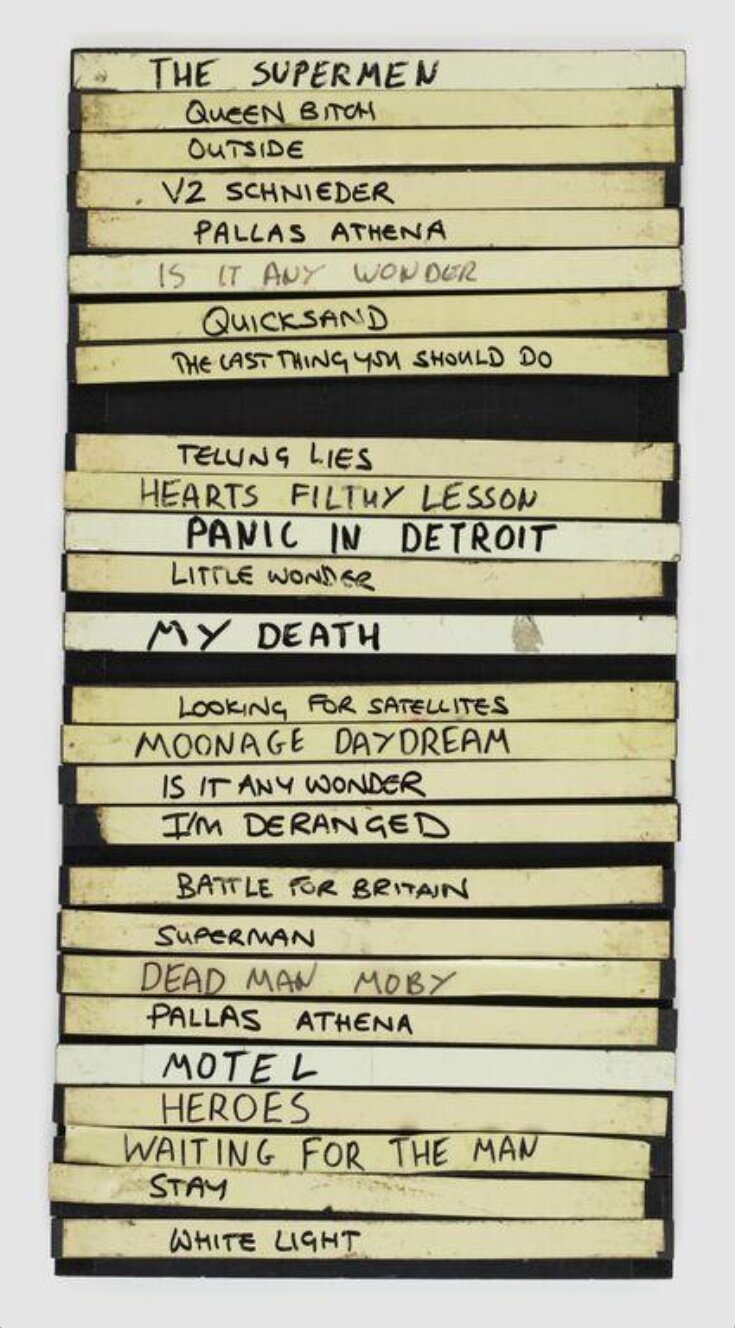 THE SUPERMEN
QUEEN BITCH
OUTSIDE
V2 SCHNIEDER
PALLAS ATHENA
IS IT ANY WONDER
QUICKSAND
THE LAST THING YOU SHOULD DO
TELLING LIES
HEARTS FILTHY LESSON
PANIC IN DETROIT
LITTLE WONDER
MY DEATH
LOOKING FOR SATELLITES
MOONAGE DAYDREAM
IS IT ANY WONDER
I'M DERANGED
BATTLE FOR BRITAIN
SUPERMAN
DEAD MAN MOBY
PALLAS ATHENA
MOTEL
HEROES
WAITING FOR THE MAN
STAY
WHITE LIGHT